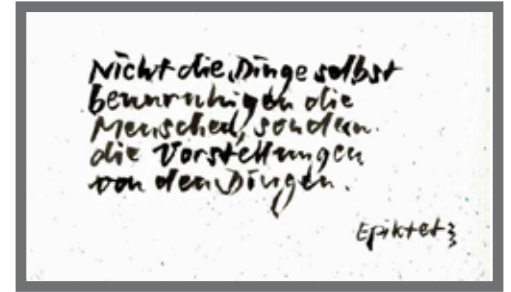 Nicht die Dinge selbst
beunruhigen die
Menschen, sondern
die Vorstellungen
von den Dingen.
Epiktet